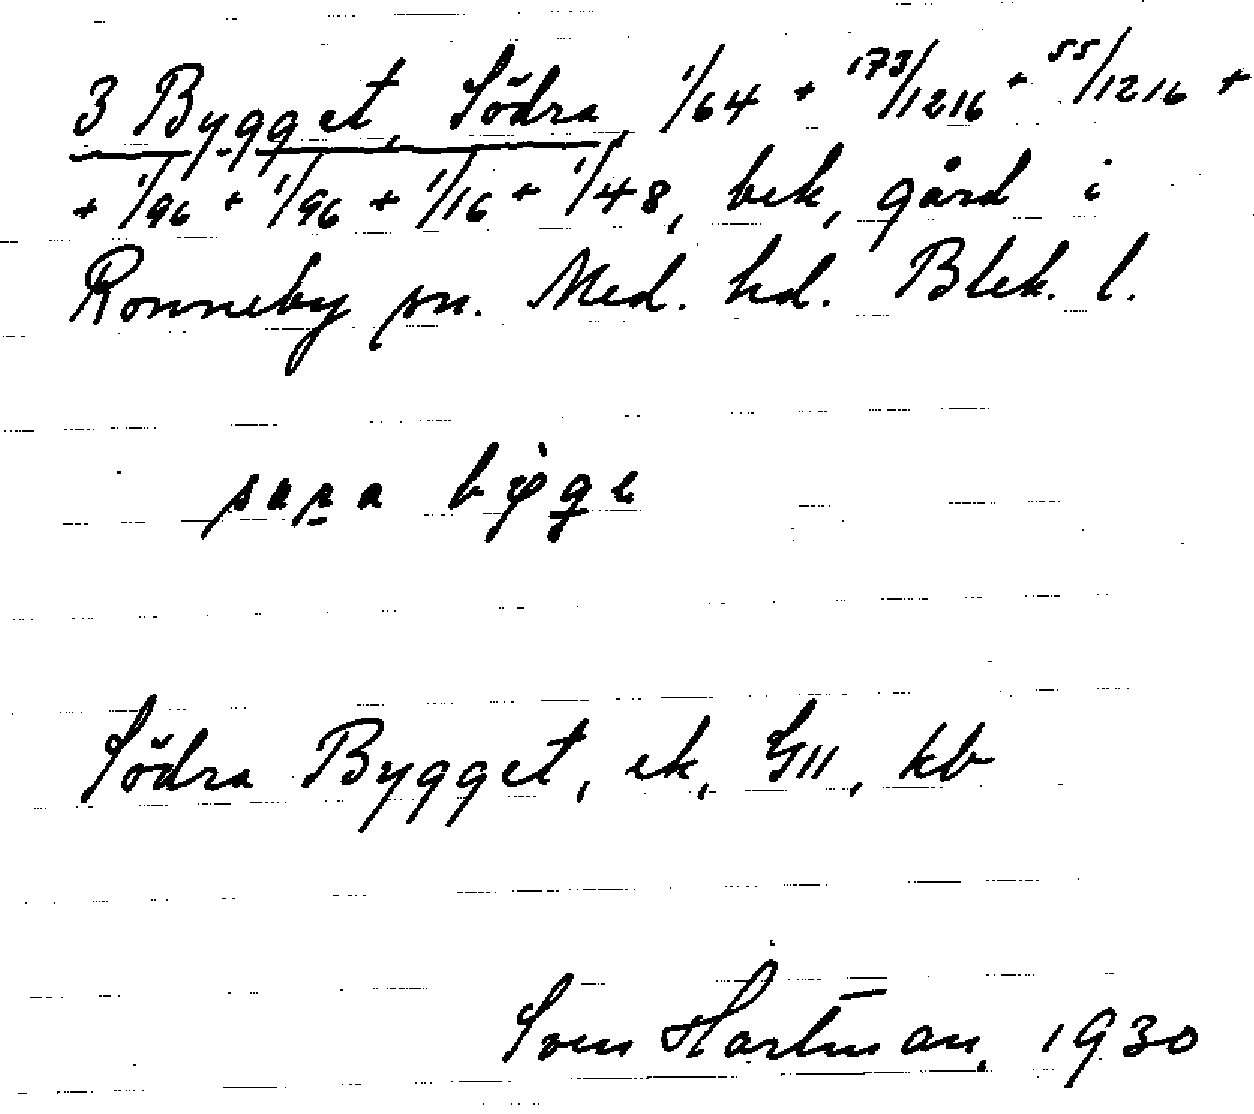 3 Bygget, Södra, 1/64 + 173/1216 + 55/1216 +
+ 1/96 + 1/96 + 1/16 + 1/48, bek, gård i
Ronneby sn. Med. hd. Blek. l.
Södra Bygget, ek, GII, kb
Sven Hartman, 1930